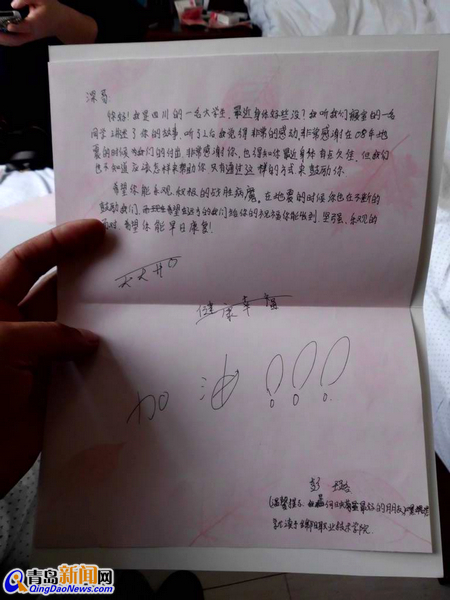 深哥
你好!我是四川的一名大学生,最近身体好些没?我听我们寝室的一名
同学上讲述了你的故事,听了之后我觉得非常的感动,非常感谢在08年地
震的时候为我们的付出,非常感谢你,也得知你最近身体有点欠佳,但我们
也不知道应该怎样来帮助你,只有通过这样的方式来鼓励你。
希望你能乐观、积极的战胜病魔。在地震的时候你也在不断的
鼓励我们,希望远方的我们给你的祝福你能收到 坚强、乐观的
希望你能早日康复!
天天开心
健康幸福
加油!!!
彭
(温馨提示:
职业技术学院
青岛新闻网
QingDaoNews.com